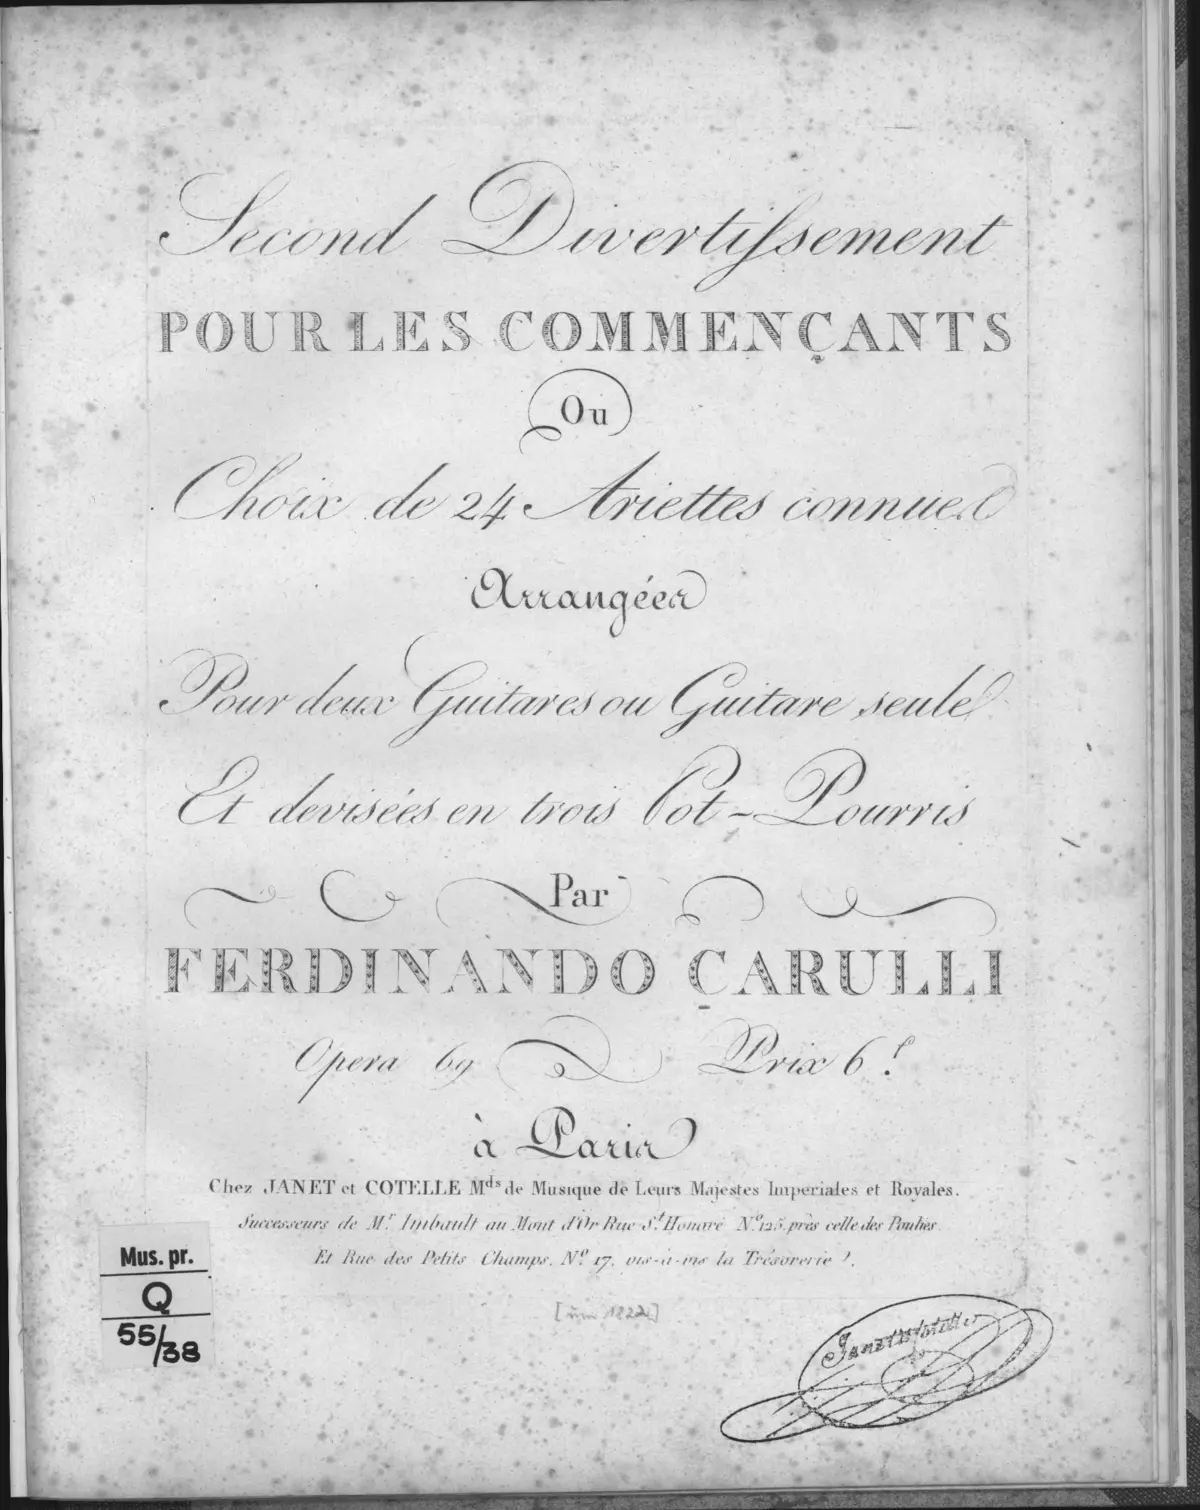 Second Divertifsement
POUR LES COMMENÇANTS
Ou
Choix de 24 Ariettes connues
Arrangées
Pour deux Guitares ou Guitare seule
Et devisées en trois Pot-Pourris
Par
FERDINANDO ÇARULLI
Opera 69 Prix 6.f
à Paris
Chez JANET et COTELLE Mds de Musique de Leurs Majestes Imperiales et Royales.
Successeurs de Mr Imbault au Mont d'Or Rue St Honoré No 125. près celle des Poulies
Et Rue des Petits Champs. No 17. vis-à-vis la Trésorerie
Mus. pr.
Q
55/38
Janet et Cotelle